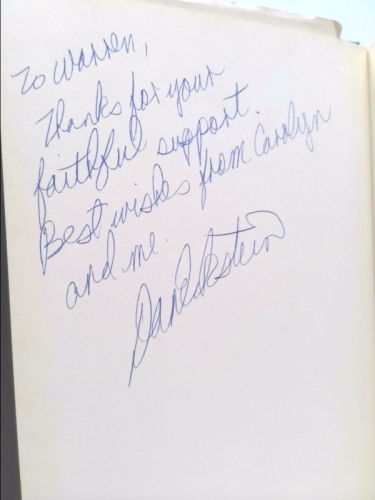 To Warren,
Thanks for your
faithful support.
Best wishes from Carolyn
and me.
Dan Eckstein